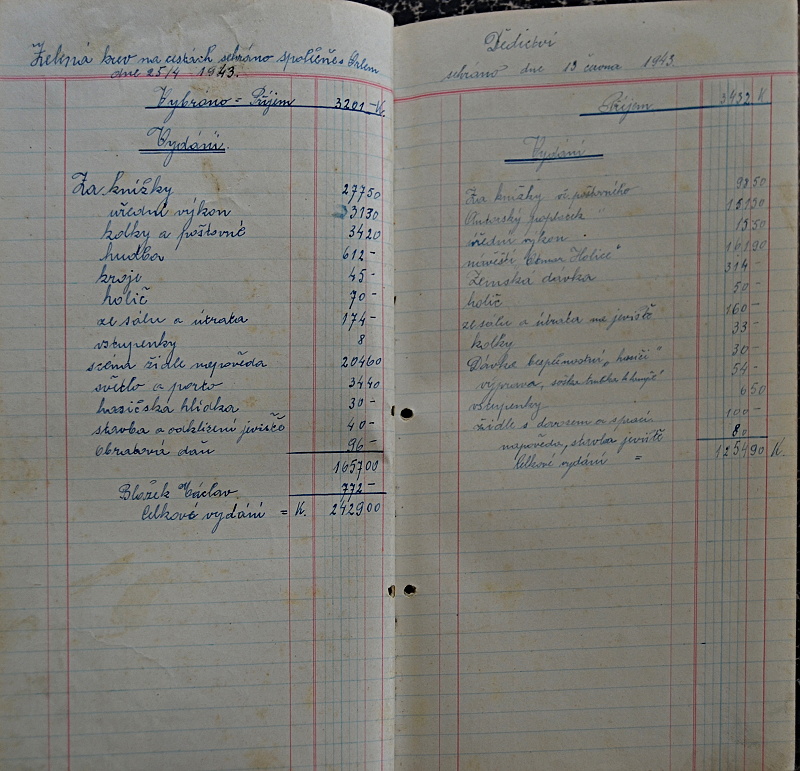 Zelená krev na cestách sehráno společně s Orlem
dne 25/4 1943.
Vybráno = Příjem 3201 - K.
Vydání.
Za knížky 277 50
úřední výkon 31 30
kolky a poštovné 34 20
hudba 612 -
kroje 45 -
holič 70 -
ze sálu a útrata 174 -
vstupenky 8
scéna židle nápověda 204 60
světlo a porto 34 40
hasičská hlídka 30 -
stavba a odklizení jeviště 40 -
Obratová daň 96 -
1657 00
Blažek Václav 772 -
Celkové vydání = K. 2429 00
Dědictví
sehráno dne 13 června 1943.
Příjem 3432 K
Vydání
Za knížky vč. poštovného 98 50
Autorský poplatek 151 30
úřední výkon 15 50
návěští 161 90
Zemská dávka 314 -
holič 50 -
ze sálu a útrata na jeviště 160 -
kolky 33 -
Dávka bezpečnostní „hasiči" 30
výprava, 54 -
vstupenky 6 50
židle s dovozem a spraví 100 -
nápověda, stavba jeviště 80
Celkové vydání = 1254 90 K.